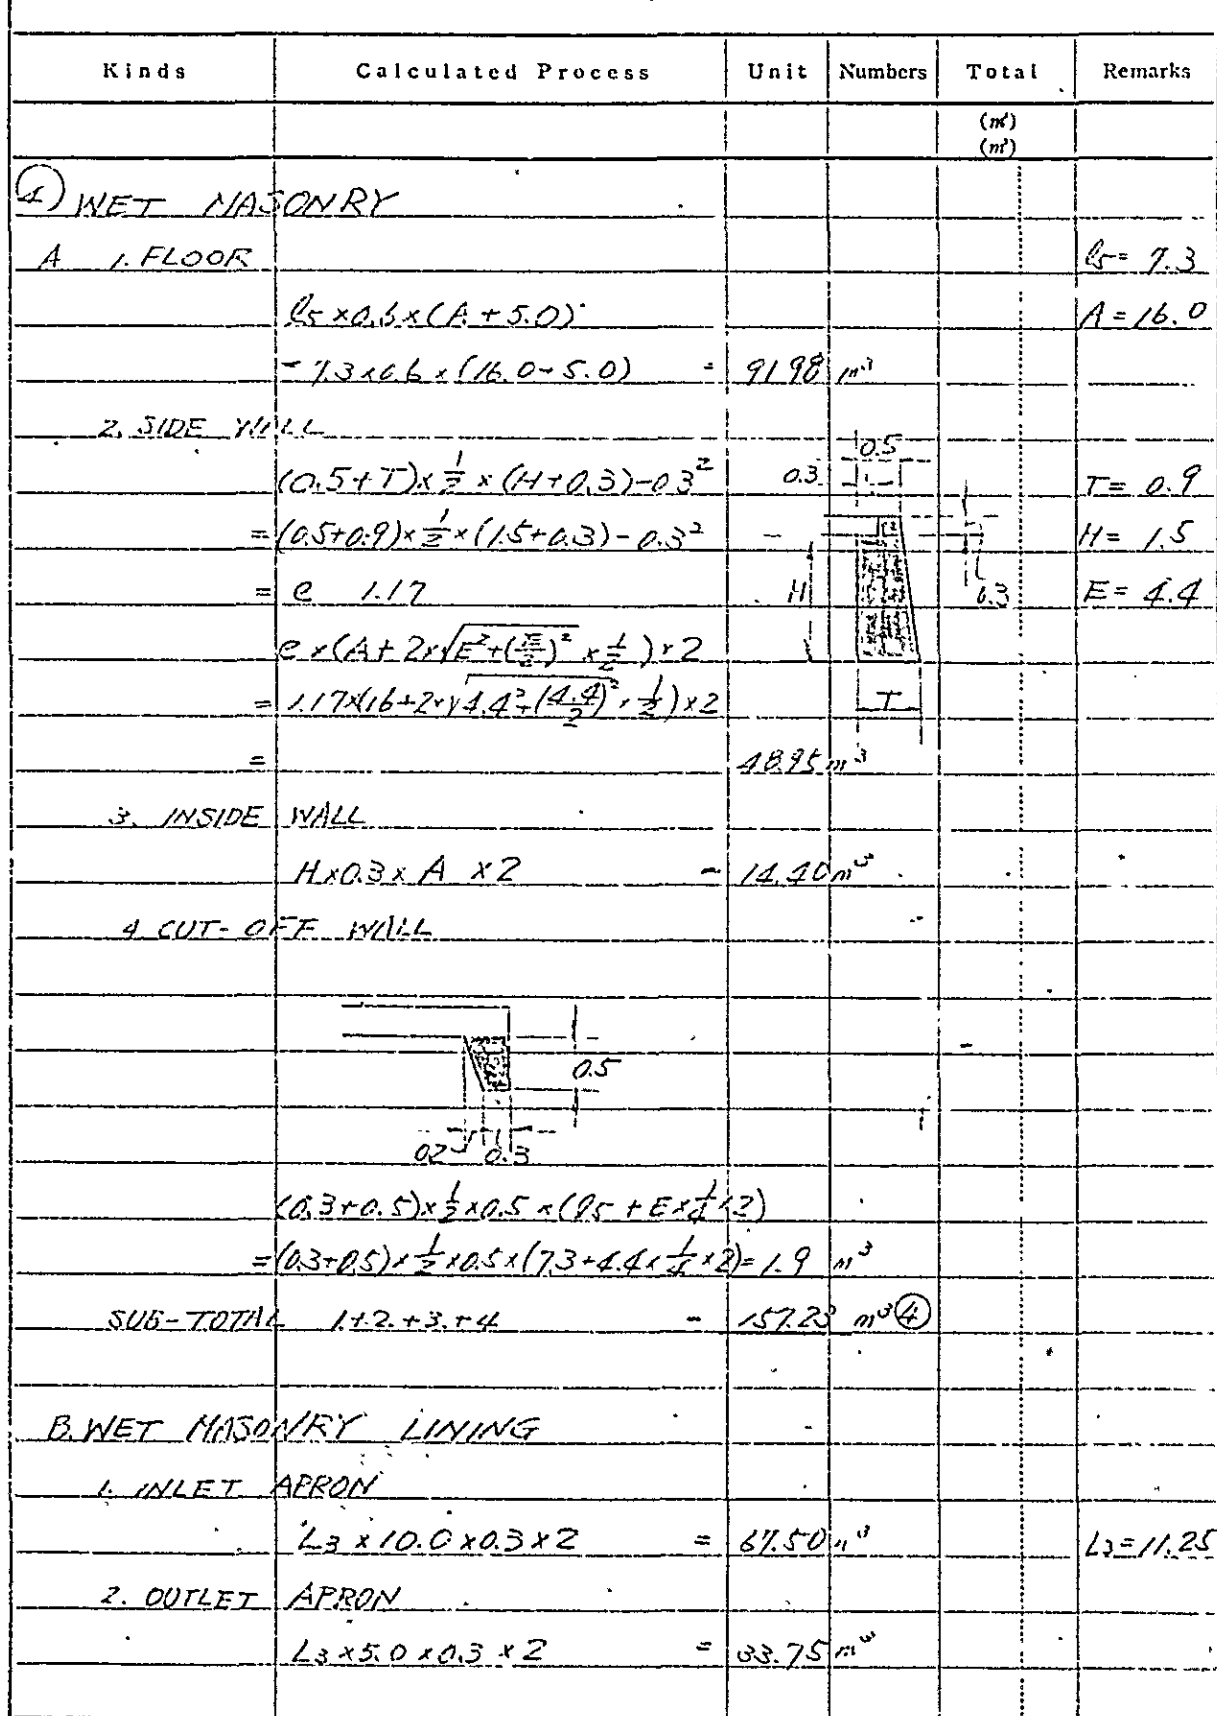 Kinds Calculated Process Unit Numbers Total Remarks
(m²)
(m³)
④ WET MASONRY
A 1. FLOOR l5= 7.3
l5 x 0.6 x (A + 5.0) A = 16.0
= 7.3 x 0.6 x (16.0 + 5.0) = 91.98 m³
2. SIDE WALL
0.5
(0.5+T) x 1/2 x (H+0.3) - 0.3² 0.3 T = 0.9
= (0.5+0.9) x 1/2 x (1.5+0.3) - 0.3² H = 1.5
= e 1.17 H 0.3 E = 4.4
e x (A + 2 x √E²+(E/2)² x 1/2) x 2
= 1.17 x (16 + 2 x √4.4²+(4.4/2)² x 1/2) x 2 T
= 48.95 m³
3. INSIDE WALL
H x 0.3 x A x 2 = 14.40 m³
4 CUT-OFF WALL
0.5
0.2 0.3
(0.3+0.5) x 1/2 x 0.5 x (l5 + E x 1/4 x 2)
= (0.3+0.5) x 1/2 x 0.5 x (7.3+4.4 x 1/4 x 2) = 1.9 m³
SUB-TOTAL 1+2.+3.+4 = 157.23 m³ ④
B. WET MASONRY LINING
1. INLET APRON
L3 x 10.0 x 0.3 x 2 = 67.50 m³ L3 = 11.25
2. OUTLET APRON
L3 x 5.0 x 0.3 x 2 = 33.75 m³